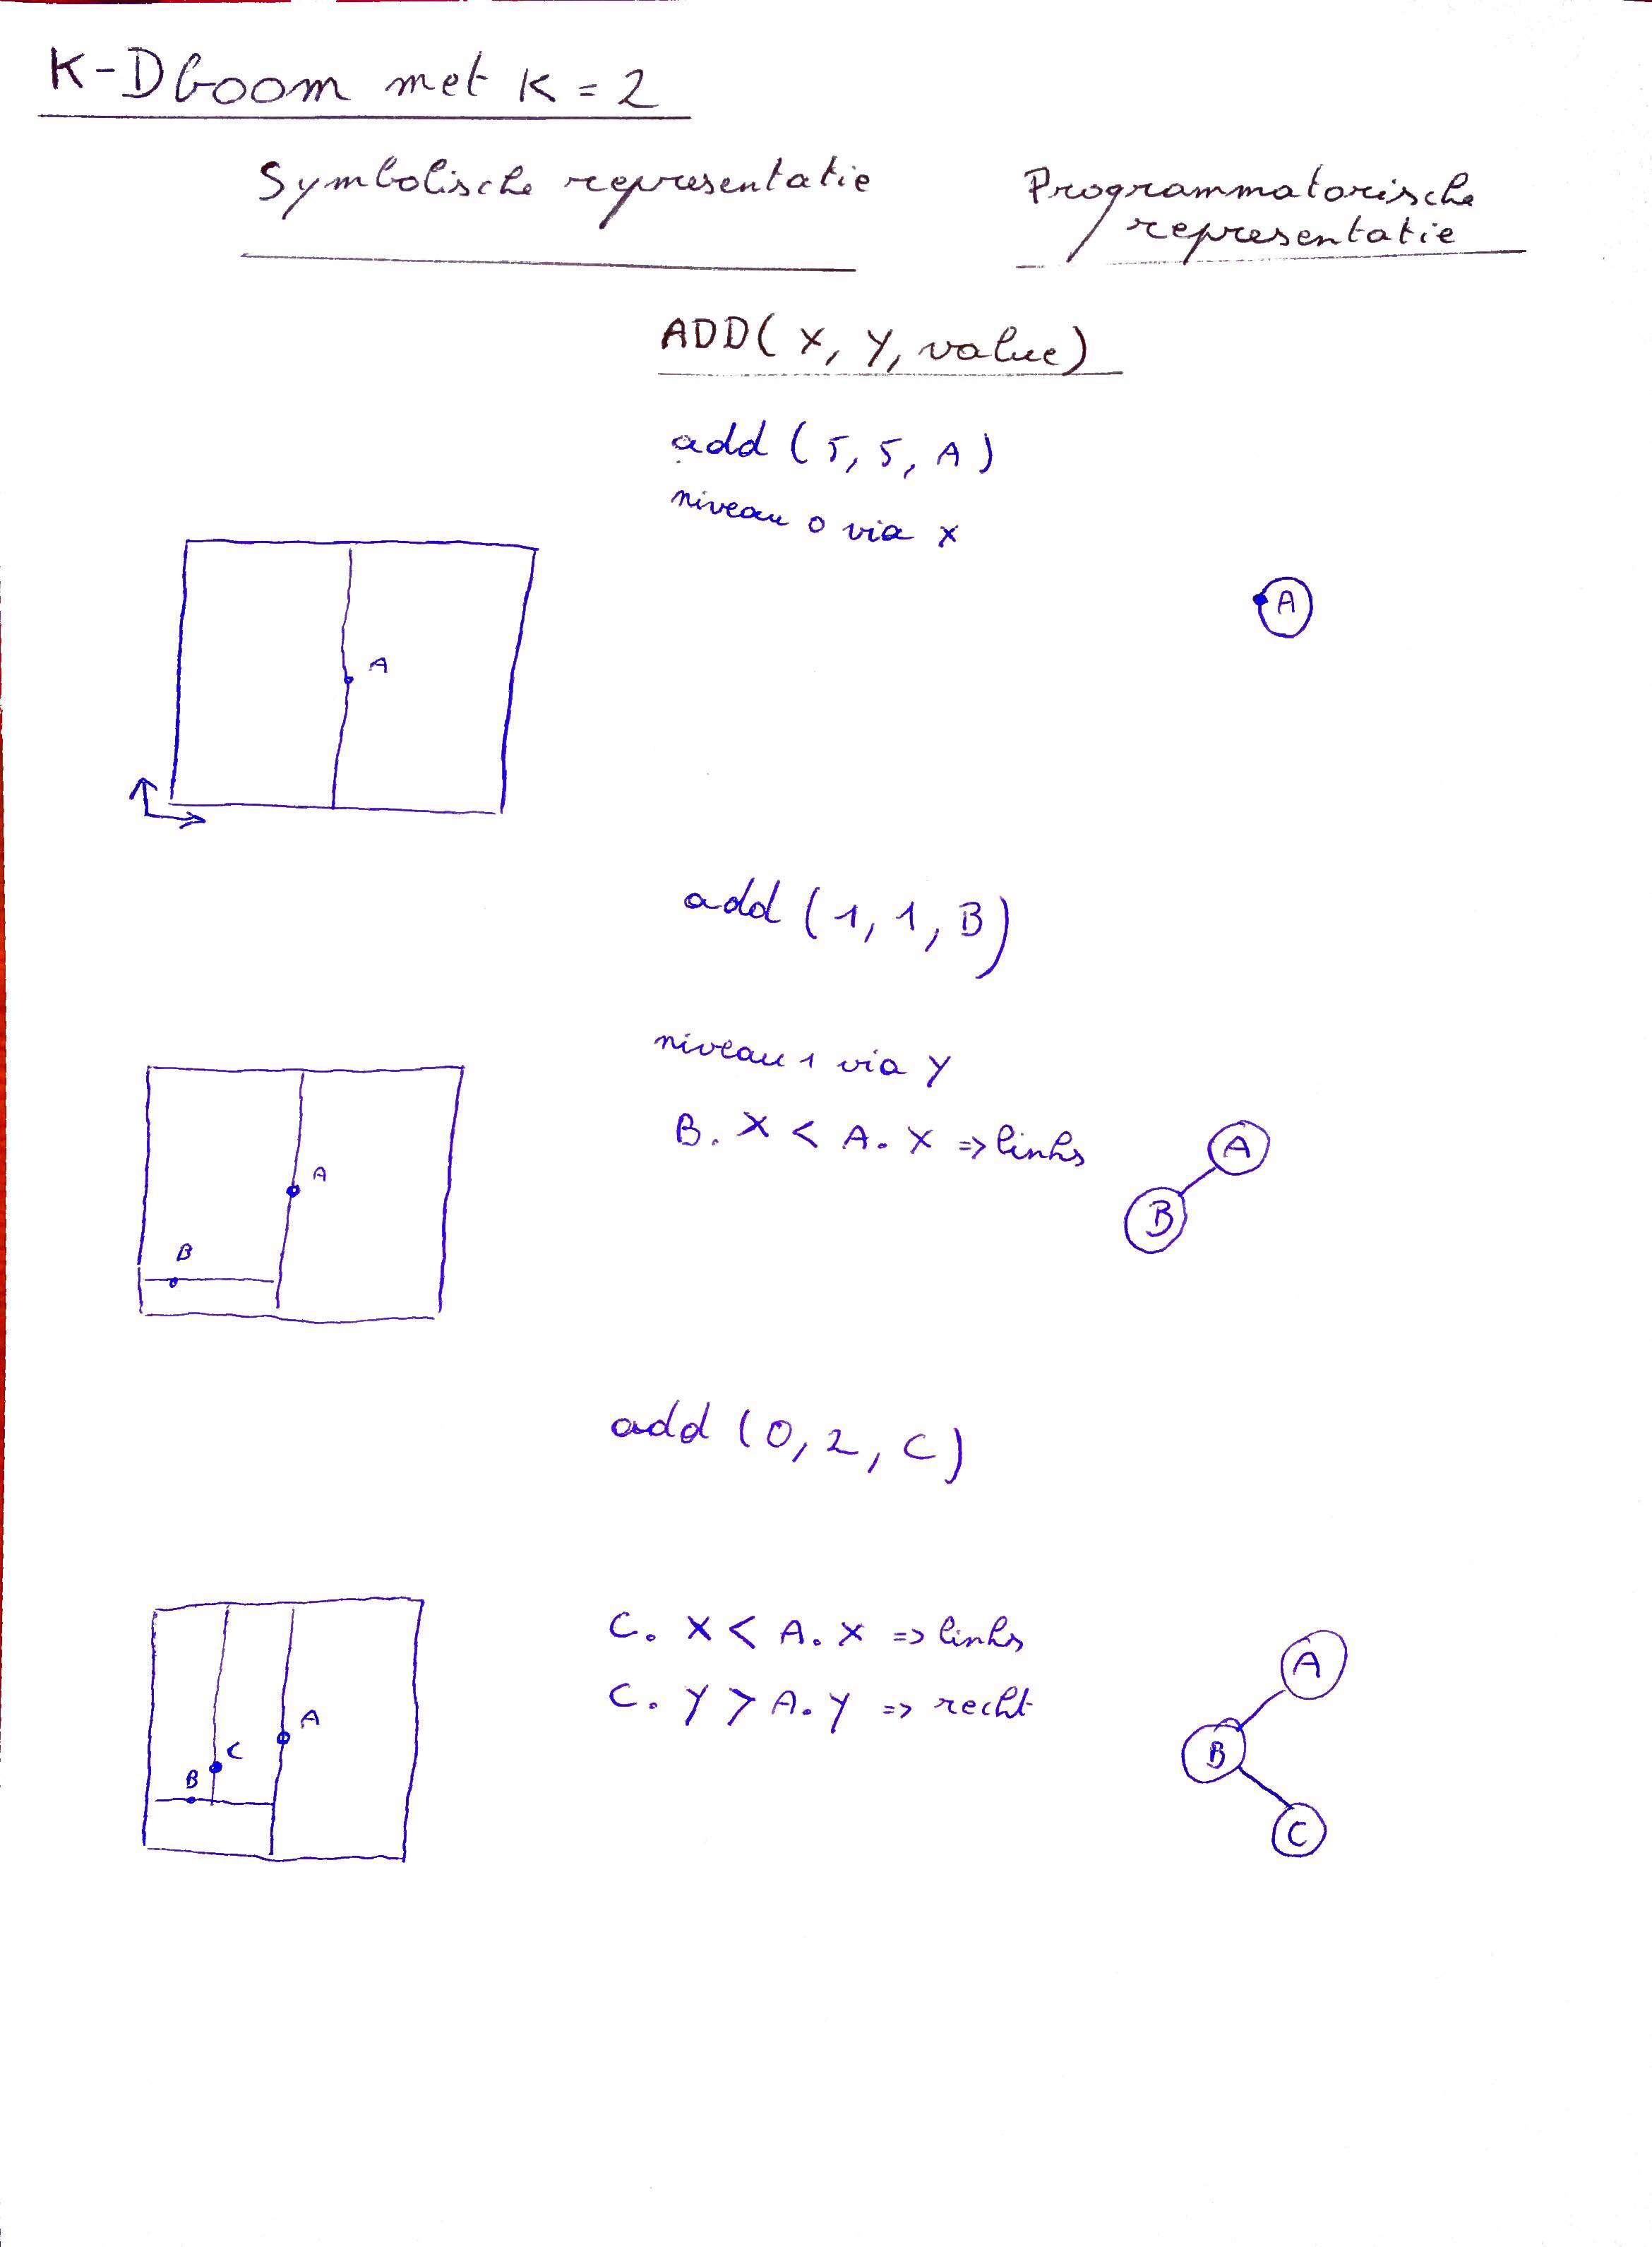 K-Dboom met K = 2
Symbolische representatie
Programmatorische
representatie
ADD(X, Y, value)
add (5, 5, A)
niveau 0 via x
A
A
add (1, 1, B)
niveau 1 via Y
B. X < A. X => links
A
B
A
B
add (0, 2, C)
C. X < A. X => links
C. Y > A. Y => recht
A
C
B
A
B
C